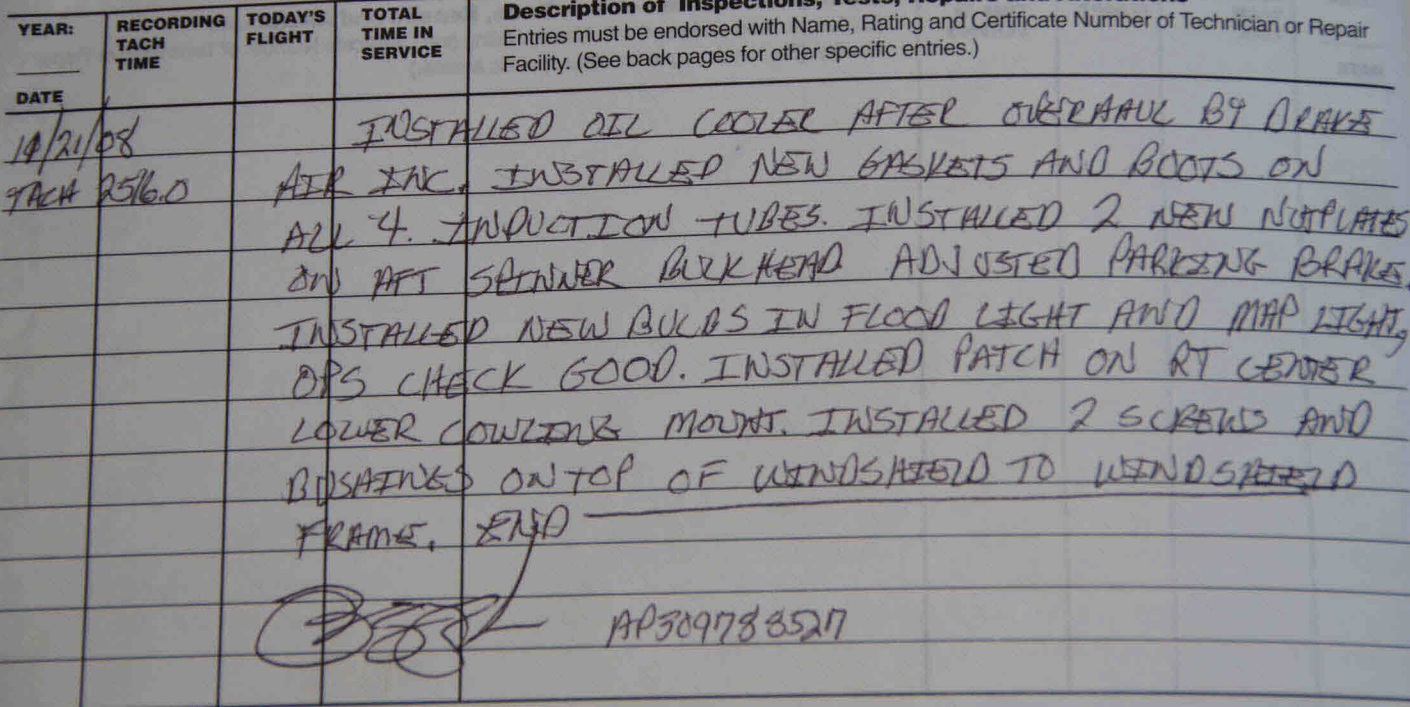 YEAR:
RECORDING TACH TIME
TODAY'S FLIGHT
TOTAL TIME IN SERVICE
Description of Inspections, Tests, Repairs and Alterations
Entries must be endorsed with Name, Rating and Certificate Number of Technician or Repair
Facility. (See back pages for other specific entries.)
DATE
INSTALLED OIL COOLER AFTER OVERHAUL BY DRAKE
/21/08
TACH 2516.0 AIR INC. INSTALLED NEW GASKETS AND BOOTS ON
ALL 4. INDUCTION TUBES. INSTALLED 2 NEW NUTPLATES
ON AFT SPINNER BULKHEAD ADJUSTED PARKING BRAKE.
INSTALLED NEW BULBS IN FLOOD LIGHT AND MAP LIGHT,
OPS CHECK GOOD. INSTALLED PATCH ON RT CENTER
LOWER COWLING MOUNT. INSTALLED 2 SCREWS AND
BUSHINGS ON TOP OF WINDSHIELD TO WINDSHIELD
FRAME. END
AP309788527